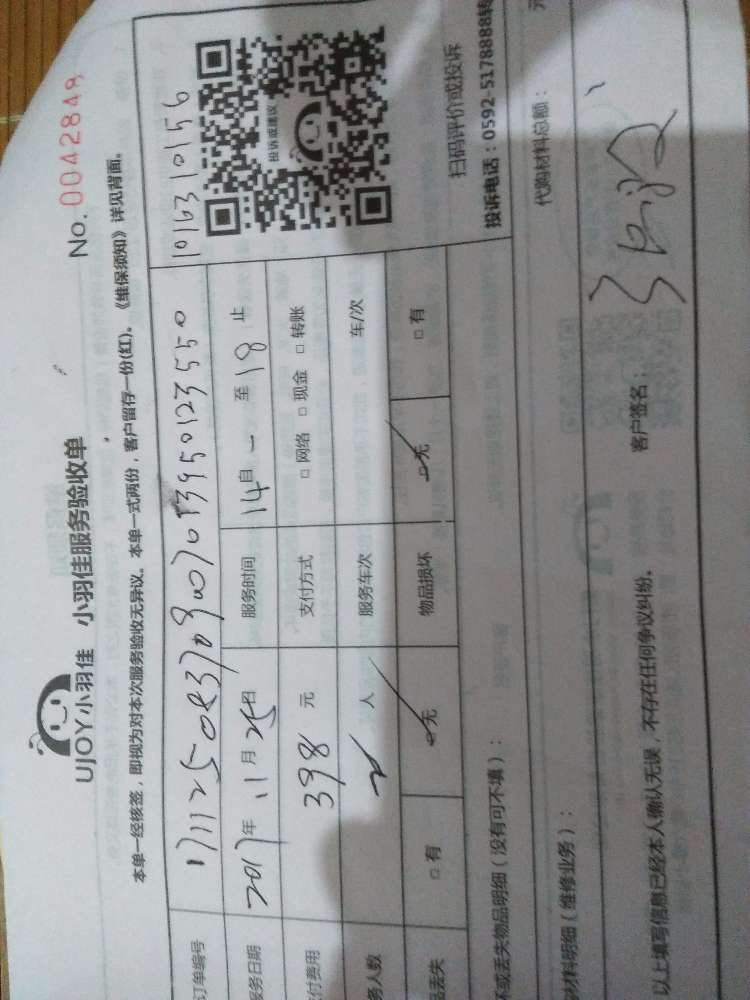 UJOY小羽佳 小羽佳服务验收单
No. 0042848
本单一经核签，即视为对本次服务验收无异议。本单一式两份，客户留存一份(红)。《维保须知》详见背面。
订单编号
10163 10156
务日期 2017年 11月 25日 服务时间 14自 一 至 18 止
付费用 398 元 支付方式 □ 网络 □ 现金 □ 转账
务人数 2 人 服务车次 车/次
品丢失 □ 有 □ 无 物品损坏 □ 无 □ 有
投诉或建议
扫码评价或投诉
投诉电话：0592-5178888转
坏或丢失物品明细（没有可不填）：
材料明细（维修业务）：
代购材料总额： 元
以上填写信息已经本人确认无误，不存在任何争议纠纷。 客户签名：